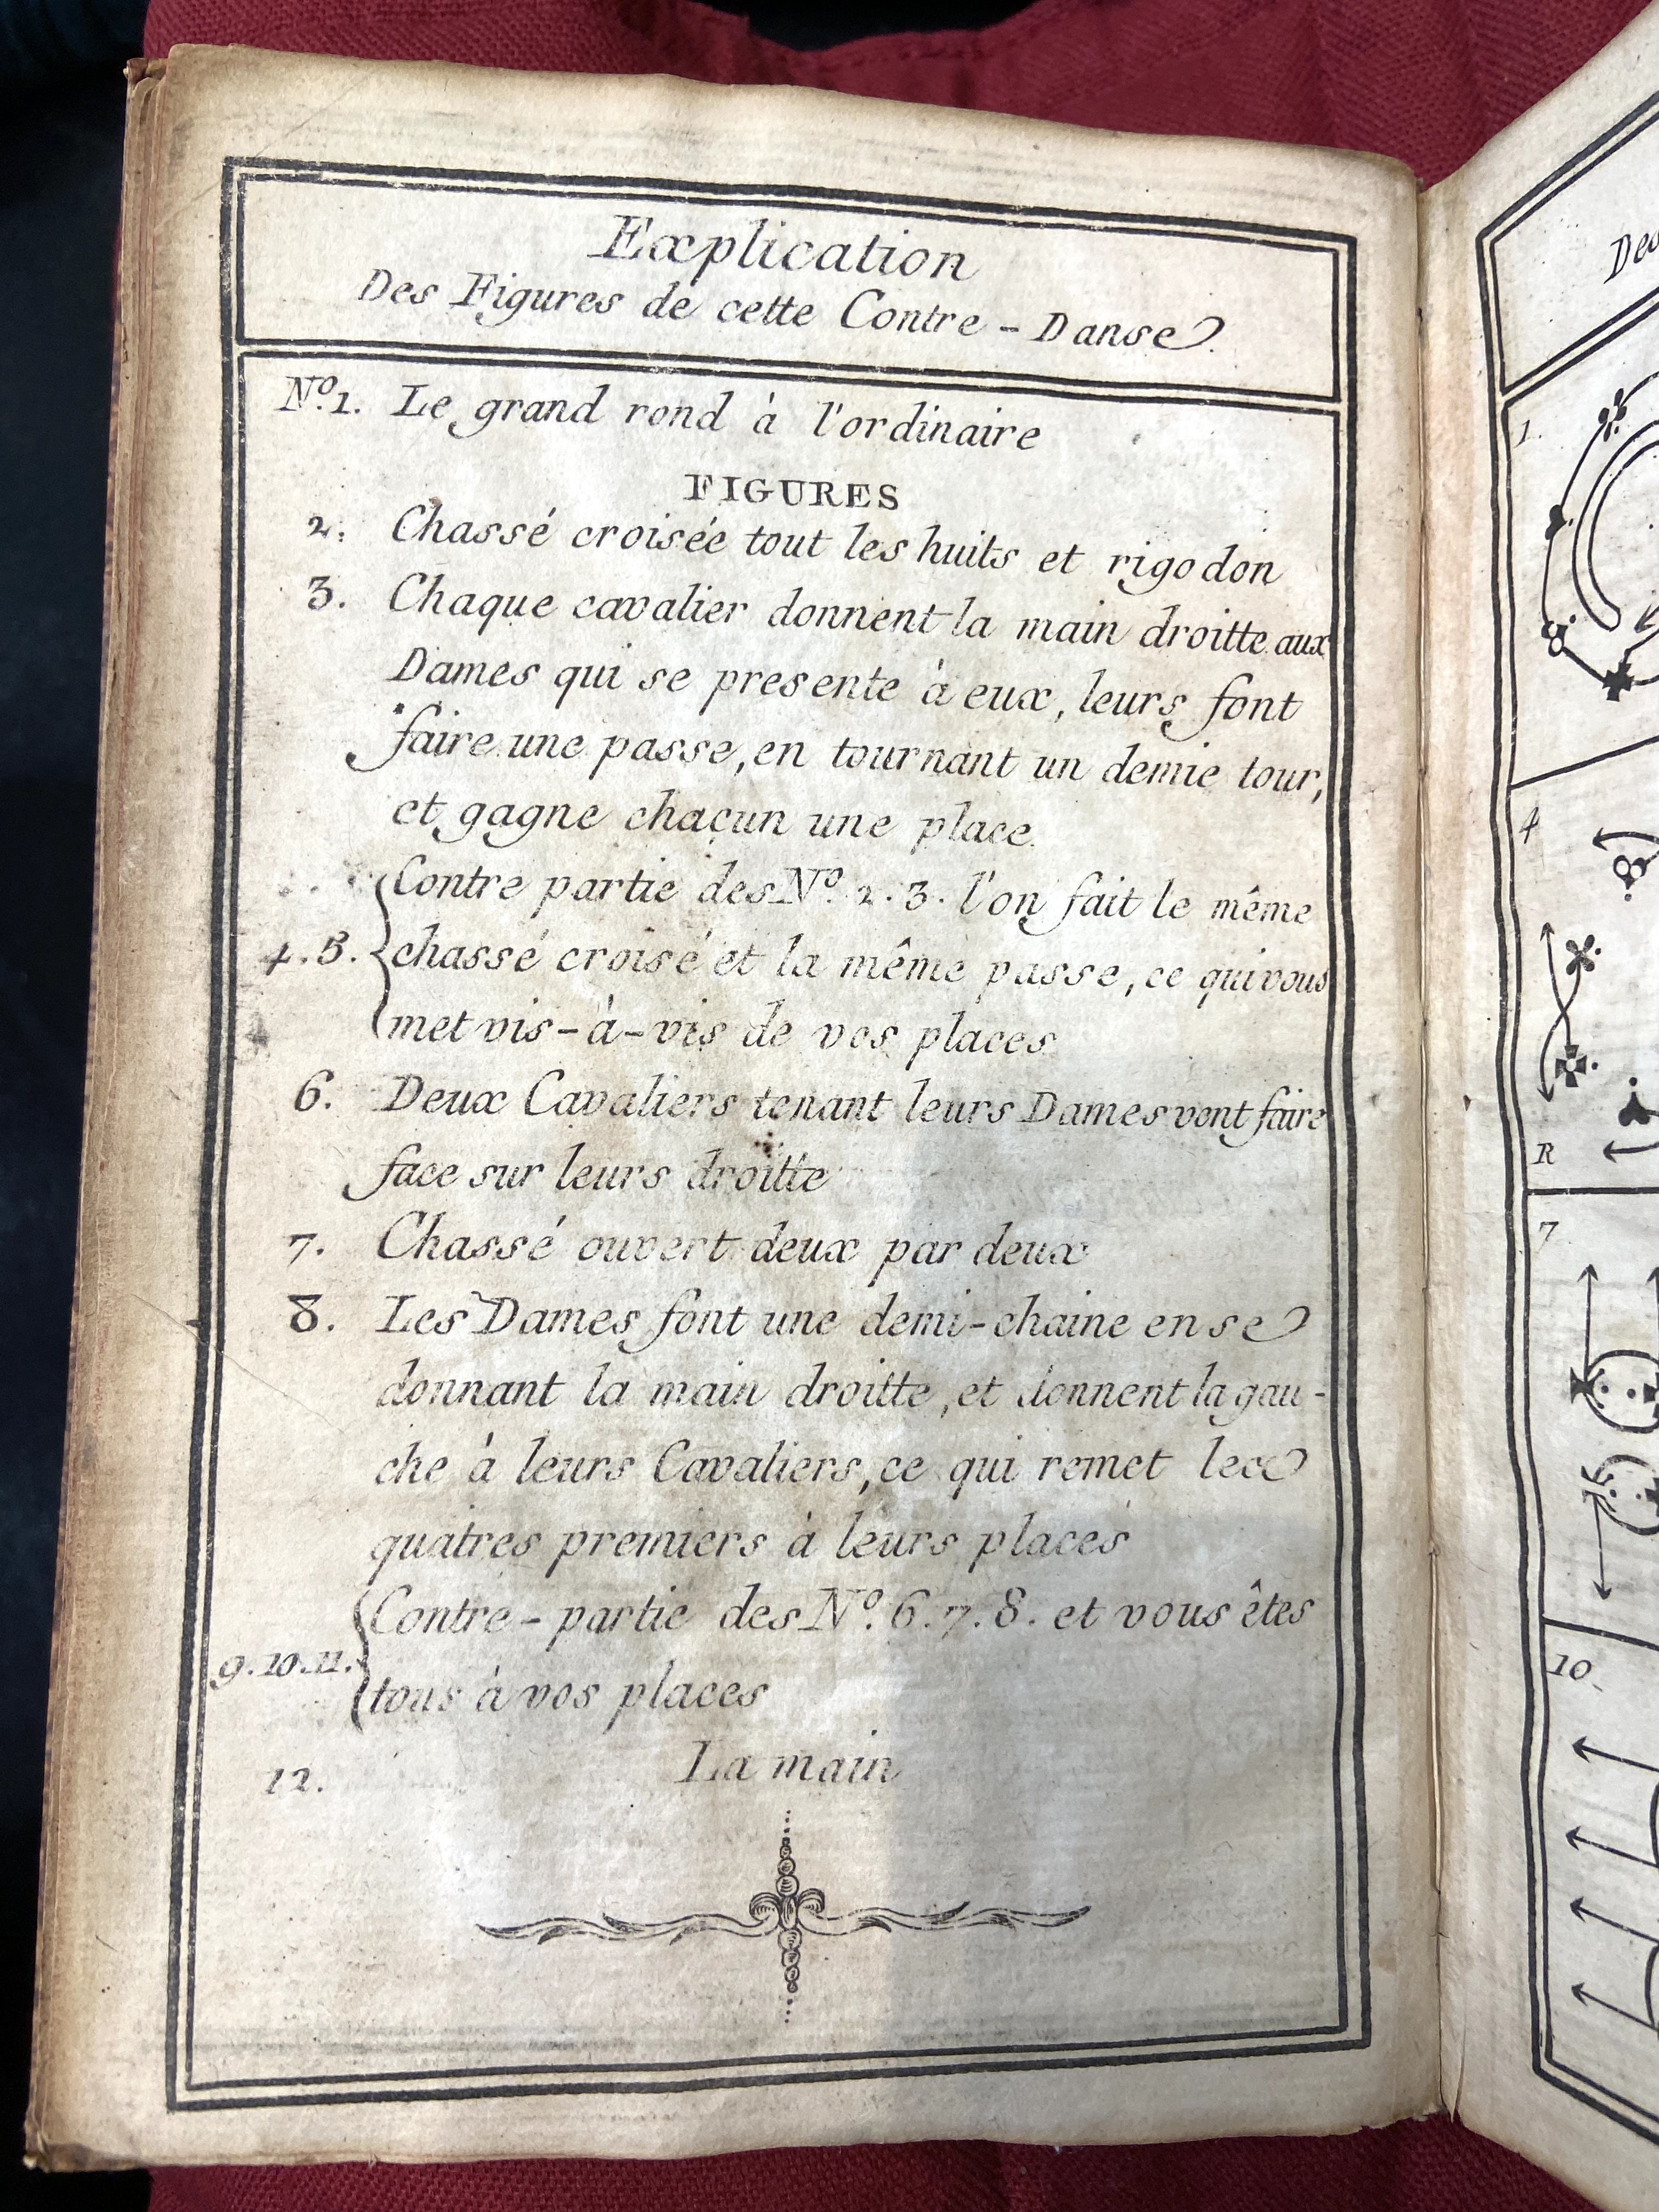 Explication
Des Figures de cette Contre-Danse.
N.º 1. Le grand rond à l'ordinaire
FIGURES
2. Chassé croisée tout les huits et rigodon
3. Chaque cavalier donnent la main droitte aux
Dames qui se presente à eux, leurs font
faire une passe, en tournant un demie tour,
et gagne chacun une place.
Contre partie des N.º 2. 3. l'on fait le même
4. 5. chassé croisé et la même passe, ce qui vous
met vis-à-vis de vos places
6. Deux Cavaliers tenant leurs Dames vont faire
face sur leurs droitte
7. Chassé ouvert deux par deux
8. Les Dames font une demi-chaine en se
donnant la main droitte, et donnent la gau-
che à leurs Cavaliers, ce qui remet les
quatres premiers à leurs places
Contre-partie des N.º 6. 7. 8. et vous êtes
9. 10. 11. tous à vos places
12. La main
Des
1.
4
R
7
10